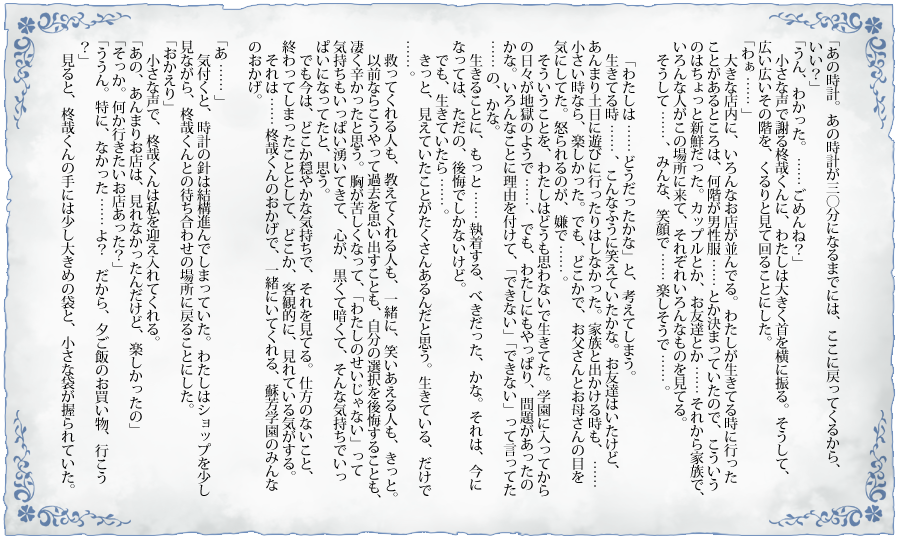 「あの時計。あの時計が三〇分になるまでには、ここに戻ってくるから、
いい？」
「うん、わかった。……ごめんね？」
　小さな声で謝る柊哉くんに、わたしは大きく首を横に振る。そうして、
広い広いその階を、くるりと見て回ることにした。
「わぁ……」
　大きな店内に、いろんなお店が並んでる。わたしが生きてる時に行った
ことがあるところは、何階が男性服……とか決まっていたので、こういう
のはちょっと新鮮だった。カップルとか、お友達とか……それから家族で、
いろんな人がこの場所に来て、それぞれいろんなものを見てる。
　そうして……、みんな、笑顔で……楽しそうで……。
「わたしは……どうだったかな」と、考えてしまう。
　生きてる時……、こんなふうに笑えていたかな。お友達はいたけど、
あんまり土日に遊びに行ったりはしなかった。家族と出かける時も、……
小さい時なら、楽しかった。でも、どこかで、お父さんとお母さんの目を
気にしてた。怒られるのが、嫌で……。
　そういうことを、わたしはどうも思わないで生きてた。学園に入ってから
の日々が地獄のようで……、でも、わたしにもやっぱり、問題があったの
かな。いろんなことに理由を付けて、「できない」「できない」って言ってた
……の、かな。
　生きることに、もっと……執着する、べきだった、かな。それは、今に
なっては、ただの、後悔でしかないけど。
　でも、生きていたら……。
　きっと、見えていたことがたくさんあるんだと思う。生きている、だけで
……。
　救ってくれる人も、教えてくれる人も、一緒に、笑いあえる人も、きっと。
　以前ならこうやって過去を思い出すことも、自分の選択を後悔することも、
凄く辛かったと思う。胸が苦しくなって、「わたしのせいじゃない」って
気持ちもいっぱい湧いてきて、心が、黒くて暗くて、そんな気持ちでいっ
ぱいになってたと、思う。
　でも今は、どこか穏やかな気持ちで、それを見てる。仕方のないこと、
終わってしまったこととして、どこか、客観的に、見れている気がする。
　それは……柊哉くんのおかげで、一緒にいてくれる、蘇芳学園のみんな
のおかげ。
「あ……」
　気付くと、時計の針は結構進んでしまっていた。わたしはショップを少し
見ながら、柊哉くんとの待ち合わせの場所に戻ることにした。
「おかえり」
　小さな声で、柊哉くんは私を迎え入れてくれる。
「あの、あんまりお店は、見れなかったんだけど、楽しかったの」
「そっか。何か行きたいお店あった？」
「ううん。特に、なかった……よ？　だから、夕ご飯のお買い物、行こう
？」
　見ると、柊哉くんの手には少し大きめの袋と、小さな袋が握られていた。